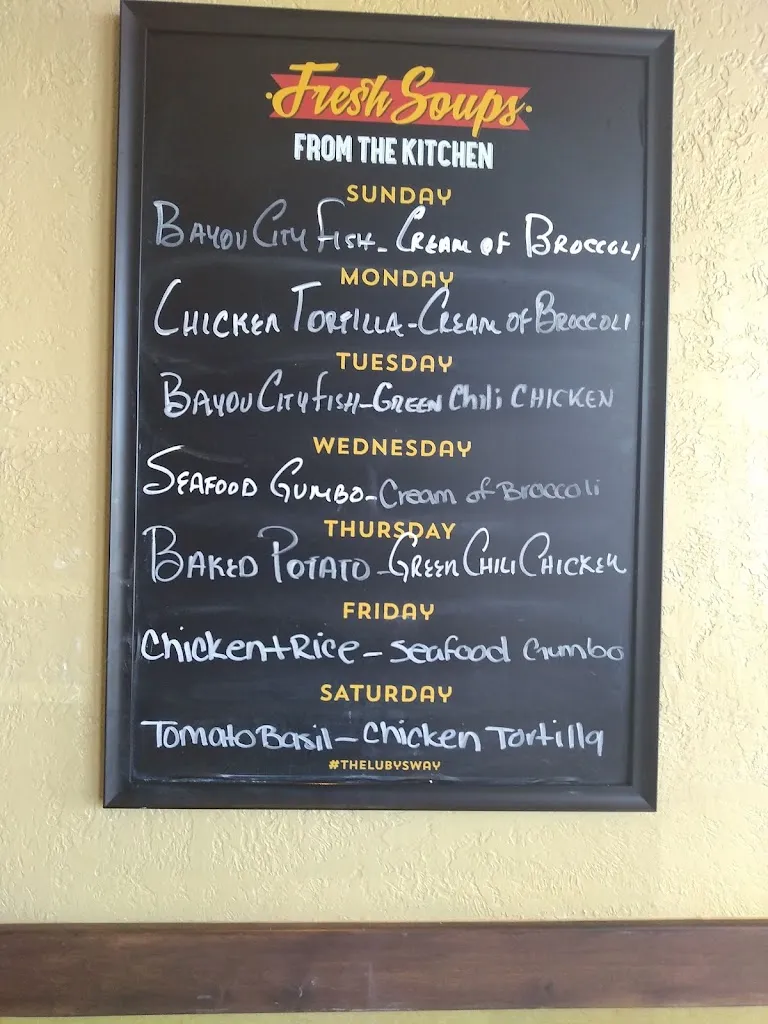 Fresh Soups
FROM THE KITCHEN
SUNDAY
BAYOU CITY FISH - CREAM OF BROCCOLI
MONDAY
CHICKEN TORTILLA - CREAM OF BROCCOLI
TUESDAY
BAYOU CITY FISH - GREEN Chili CHICKEN
WEDNESDAY
SEAFOOD GUMBO - Cream of Broccoli
THURSDAY
BAKED POTATO - GREEN CHILI CHICKEN
FRIDAY
Chicken + Rice - Seafood Gumbo
SATURDAY
Tomato Basil - Chicken Tortilla
#THELUBYSWAY